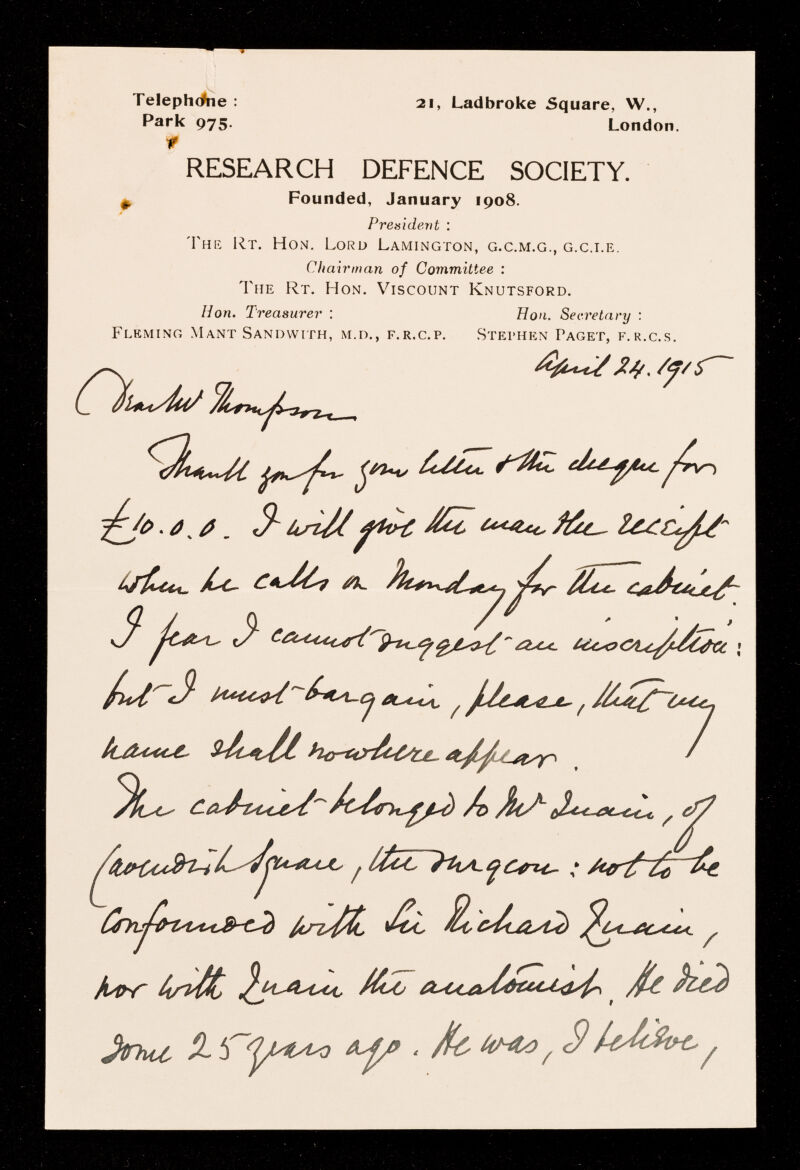 Telephone :
Park 975.
21, Ladbroke Square, W.,
London.
RESEARCH DEFENCE SOCIETY.
Founded, January 1908.
President :
THE RT. HON. LORD LAMINGTON, G.C.M.G., G.C.I.E.
Chairman of Committee :
THE RT. HON. VISCOUNT KNUTSFORD.
Hon. Treasurer :
FLEMING MANT SANDWITH, M.D., F.R.C.P.
Hon. Secretary :
STEPHEN PAGET, F.R.C.S.
April 24. 1915
Dear Mr Thompson
Thank you for your letter & the cheque for
£10.0.0. I will give the man the receipt
when he calls on Monday for the cabinet.
I fear I cannot suggest an inscription :
but I must bargain, please, that my
name shall nowhere appear.
The cabinet belonged to Mr Quain, of
Cavendish Square, the surgeon : not to be
confounded with Sir Richard Quain,
nor with Quain the anatomist. He died
some 25 years ago. He was, I believe,